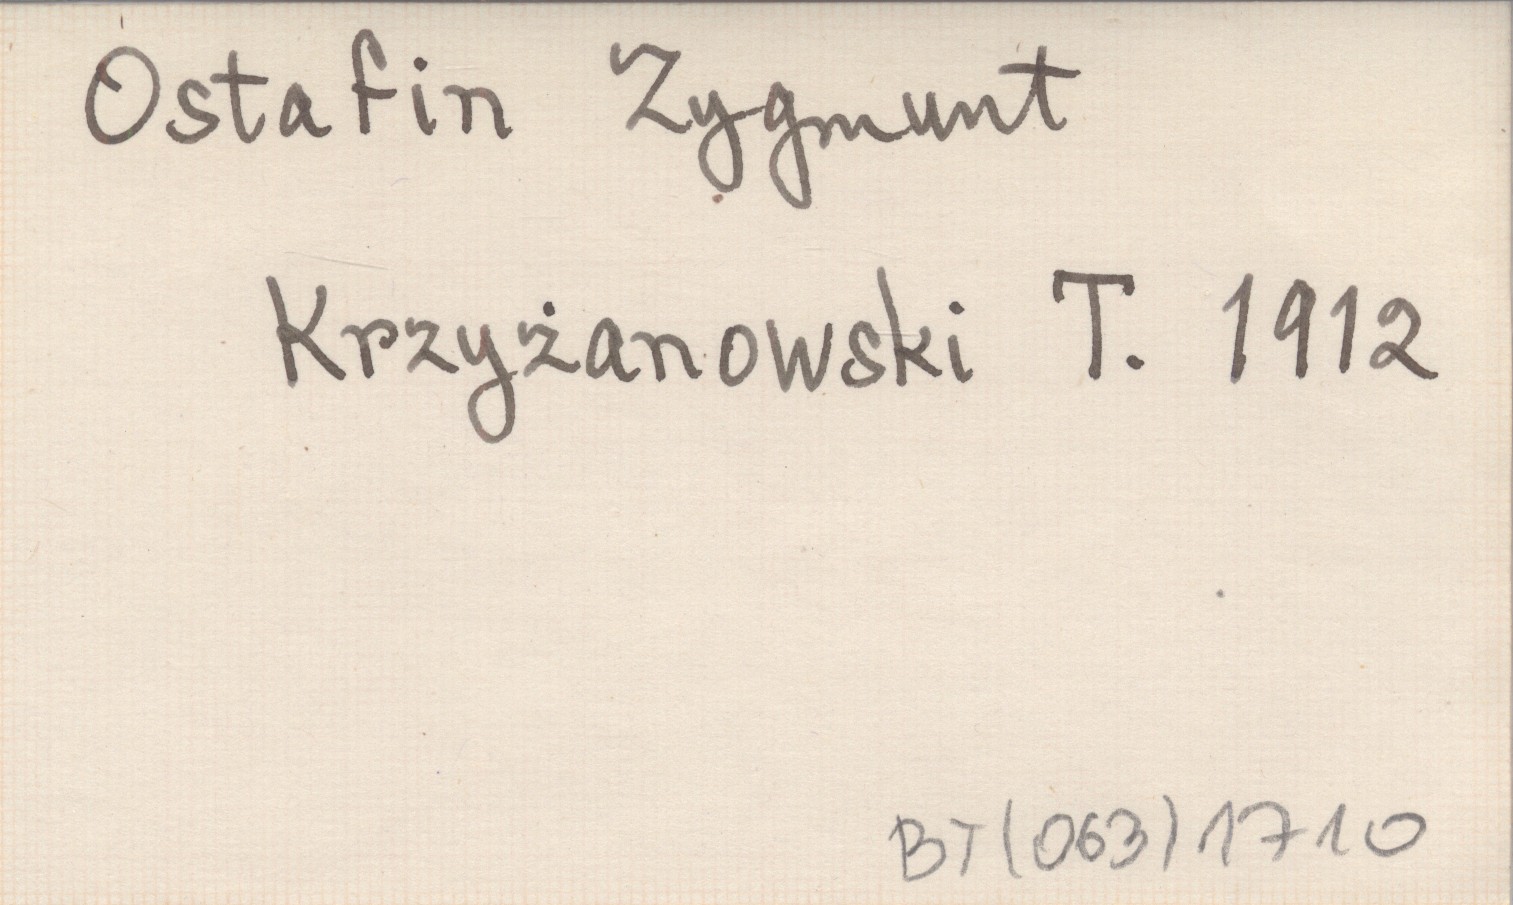 Ostafin Zygmunt
Krzyżanowski T. 1912
BT(063)1710